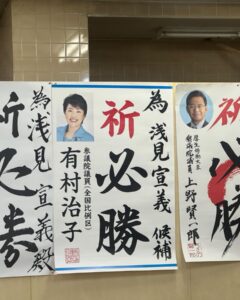 祈
必勝
厚生労働大臣
衆議院議員 上野賢一郎
為 浅見宣義 候補
祈
必勝
参議院議員(全国比例区)
有村治子
為 浅見宣義 殿
祈
必勝